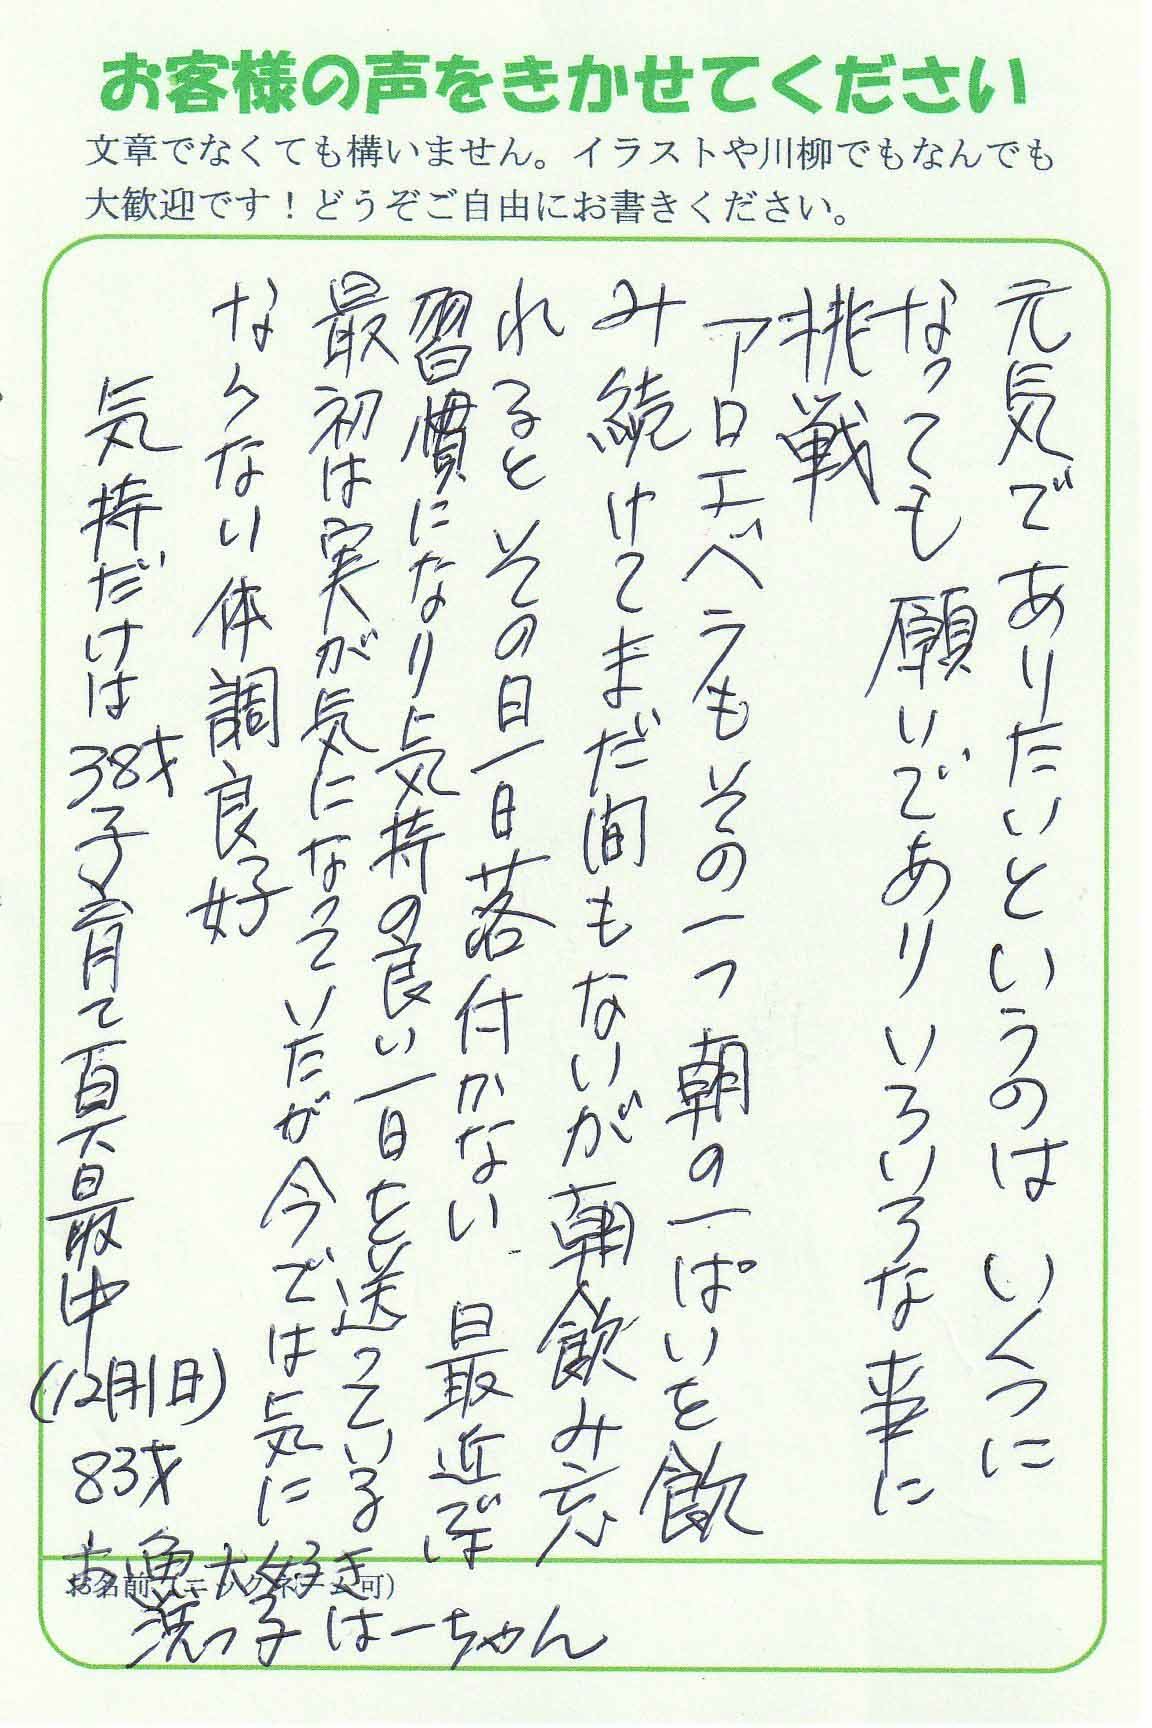 お客様の声をきかせてください
文章でなくても構いません。イラストや川柳でもなんでも
大歓迎です！どうぞご自由にお書きください。
元気でありたいというのは いくつに
なっても 願いであり いろいろな事に
挑戦
アロエベラもその一つ 朝の一ぱいを飲
み続けてまだ間もないが 朝飲み忘
れると その日一日落付かない 最近では
習慣になり 気持の良い一日を送っている
最初は実が気になっていたが 今では気に
ならない 体調良好
気持だけは 38才 子育て真最中
(12月1日) 83才
お魚大好き
お名前（ニックネーム可）
浜っ子 はーちゃん